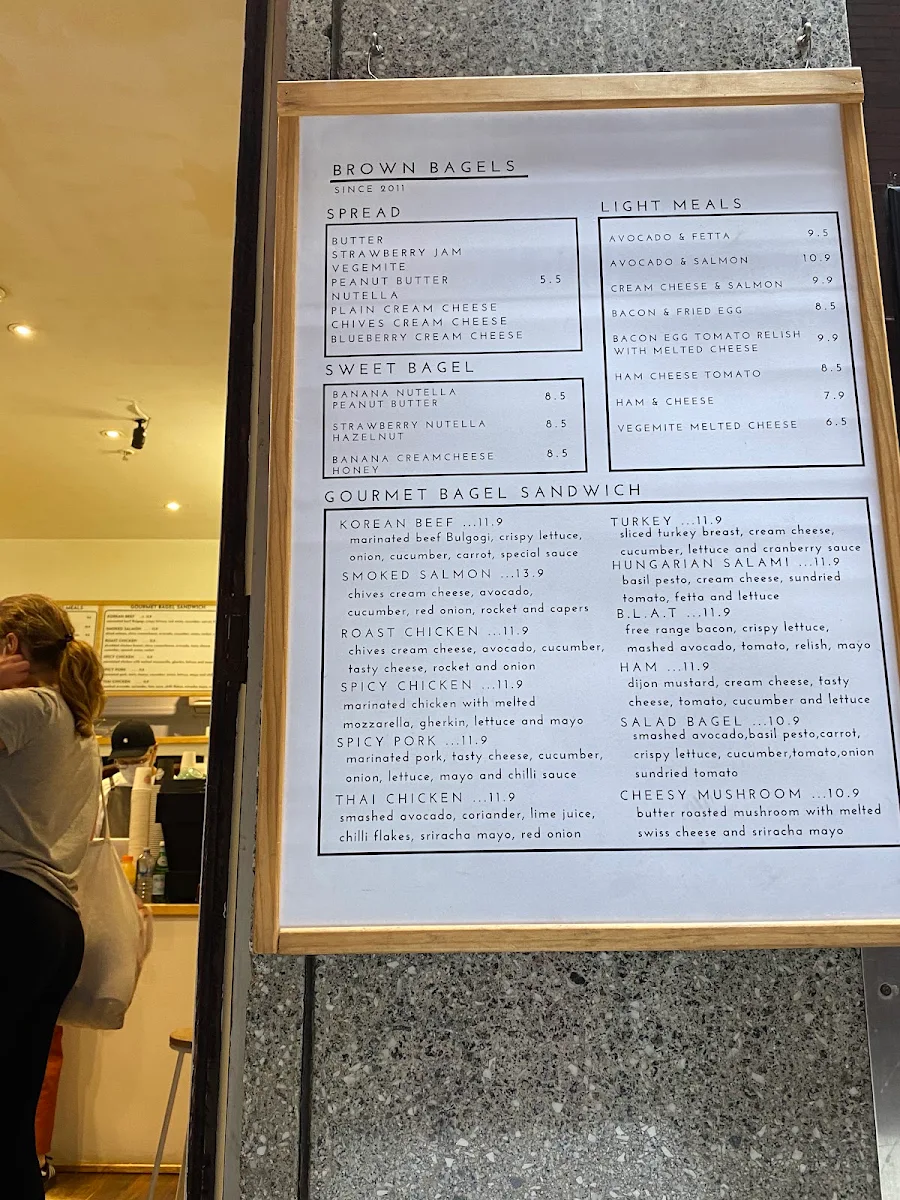 BROWN BAGELS
SINCE 2011
SPREAD
BUTTER
STRAWBERRY JAM
VEGEMITE
PEANUT BUTTER 5.5
NUTELLA
PLAIN CREAM CHEESE
CHIVES CREAM CHEESE
BLUEBERRY CREAM CHEESE
SWEET BAGEL
BANANA NUTELLA
PEANUT BUTTER 8.5
STRAWBERRY NUTELLA
HAZELNUT 8.5
BANANA CREAMCHEESE
HONEY 8.5
LIGHT MEALS
AVOCADO & FETTA 9.5
AVOCADO & SALMON 10.9
CREAM CHEESE & SALMON 9.9
BACON & FRIED EGG 8.5
BACON EGG TOMATO RELISH
WITH MELTED CHEESE 9.9
HAM CHEESE TOMATO 8.5
HAM & CHEESE 7.9
VEGEMITE MELTED CHEESE 6.5
GOURMET BAGEL SANDWICH
KOREAN BEEF ...11.9
marinated beef Bulgogi, crispy lettuce,
onion, cucumber, carrot, special sauce
SMOKED SALMON ...13.9
chives cream cheese, avocado,
cucumber, red onion, rocket and capers
ROAST CHICKEN ...11.9
chives cream cheese, avocado, cucumber,
tasty cheese, rocket and onion
SPICY CHICKEN ...11.9
marinated chicken with melted
mozzarella, gherkin, lettuce and mayo
SPICY PORK ...11.9
marinated pork, tasty cheese, cucumber,
onion, lettuce, mayo and chilli sauce
THAI CHICKEN ...11.9
smashed avocado, coriander, lime juice,
chilli flakes, sriracha mayo, red onion
TURKEY ...11.9
sliced turkey breast, cream cheese,
cucumber, lettuce and cranberry sauce
HUNGARIAN SALAMI ...11.9
basil pesto, cream cheese, sundried
tomato, fetta and lettuce
B.L.A.T ...11.9
free range bacon, crispy lettuce,
mashed avocado, tomato, relish, mayo
HAM ...11.9
dijon mustard, cream cheese, tasty
cheese, tomato, cucumber and lettuce
SALAD BAGEL ...10.9
smashed avocado,basil pesto,carrot,
crispy lettuce, cucumber,tomato,onion
sundried tomato
CHEESY MUSHROOM ...10.9
butter roasted mushroom with melted
swiss cheese and sriracha mayo
MEALS
GOURMET BAGEL SANDWICH
KOREAN BEEF
SMOKED SALMON
ROAST CHICKEN
SPICY CHICKEN
SPICY PORK
THAI CHICKEN